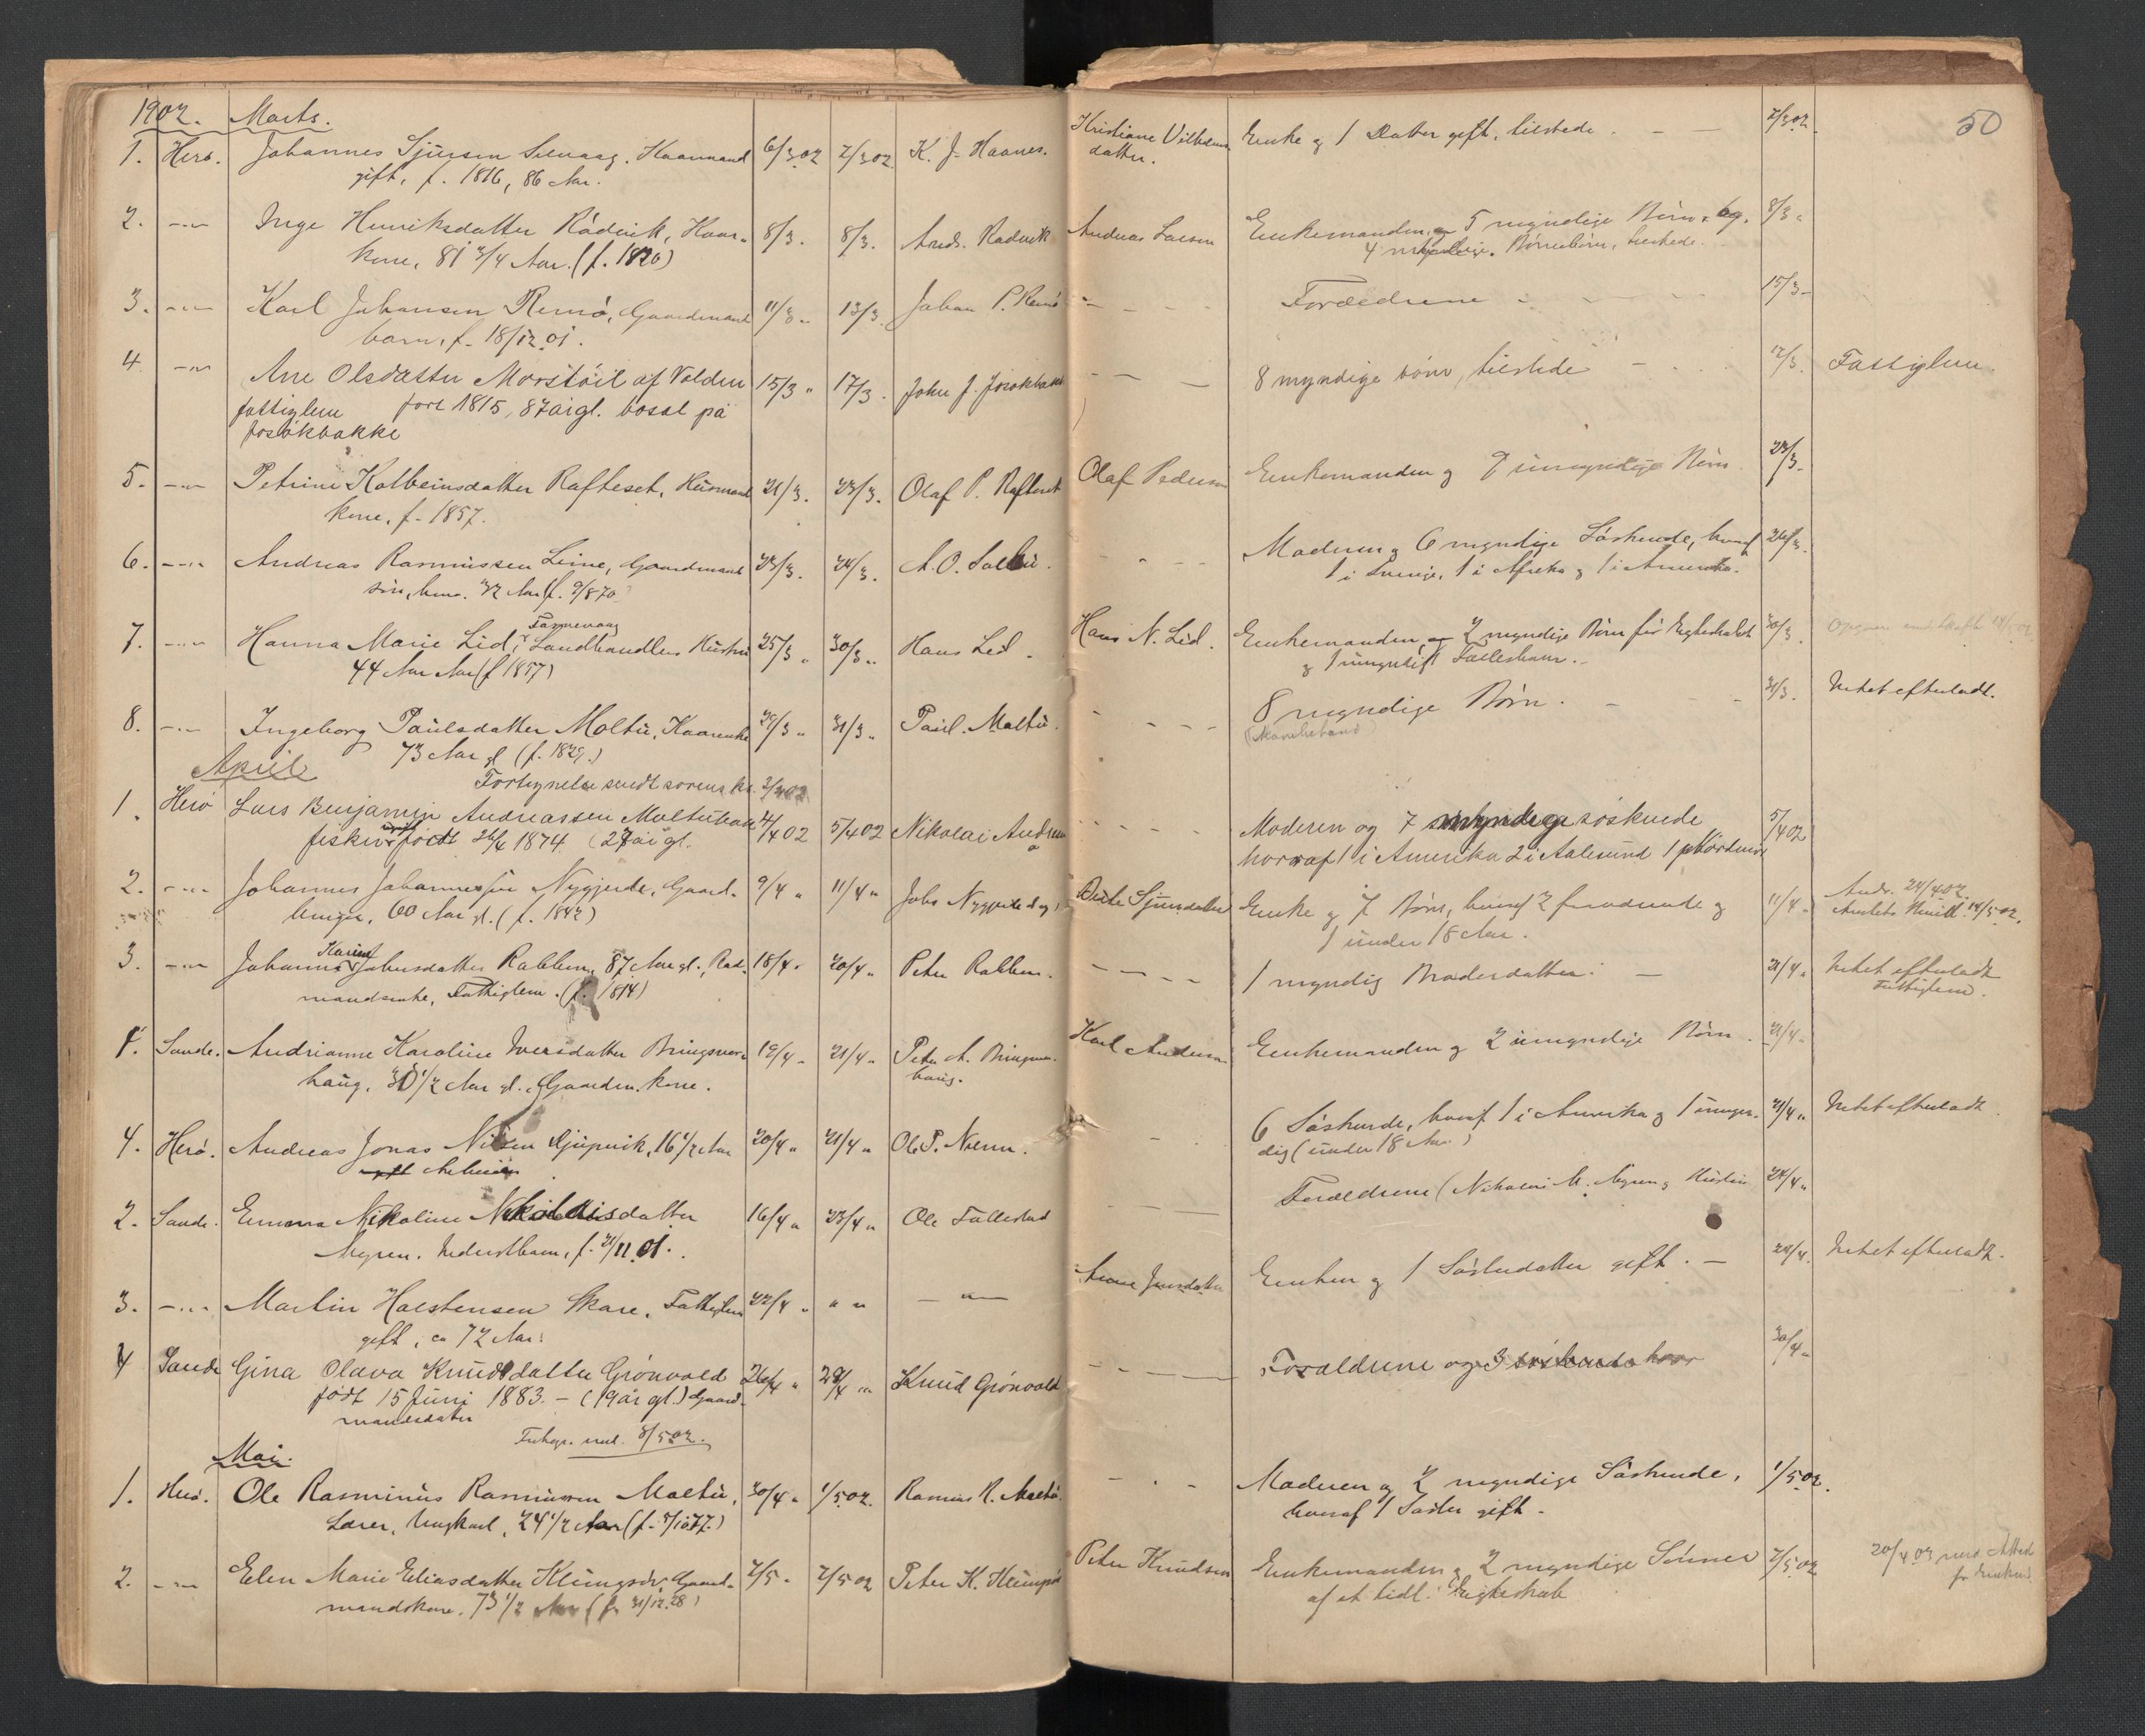 1902. Marts.
1. Herø. Johannes Sjursen Kaarmand 6/3 02 7/3 02 K. J. Haanes.
gift, f. 1816, 86 Aar.
2. -"- Inge Henriksdatter Rådvik, Kaar- 8/3. 8/3. Ands. Radvik
kone, 81 3/4 Aar. (f. 1820)
3. -"- Karl Johansen Remø, Gaardmand 11/3 13/3 Johan P. Remø
barn, f. 18/12 01.
4. -"- Ane Olsdatter Morstøil af Volden 15/3 " 17/3. John J. Josokbakk
fattiglem født 1815, 87 år gl. bosat på
Josokbakke
5. -"- Petrine Kolbeinsdatter Rafteset, Husmand 21/3. 23/3. Olaf P. Rafteset
kone, f. 1857.
6. -"- Andreas Rasmussen Leine, Gaardmand 23/3. 24/3.
søn, 32 Aar (f. 9/8 70
Fannevaag
7. -"- Hanna Marie Lid, Landhandlers Hustru 25/3 " 30/3 " Hans Lid.
44 Aar (f 1857)
8. -"- Ingeborg Paulsdatter Moltu, Kaarenke 29/3 " 31/3 " Paul Moltu.
73 Aar gl (f. 1829.)
April
Fortegnelse sendt sorensk. 2/4 02
1. Herø Lars Benjamin Andreassen Moltubakk 4/4 02 5/4 02 Nikolai Andreas
fisker ugift født 26/4 1874 (27 år gl.
2. -"- Johannes Johannessen Nygjerde, Gaard- 9/4 " 11/4 " Johs Nygjerde
bruger, 60 Aar gl. (f. 1842)
Karine
3. -"- Johanne Johnsdatter Rabben, 87 Aar gl., Rad- 18/4 " 20/4 " Peter Rabben.
mandsenke, Fattiglem. (f. 1814)
1. Sande. Andrianne Karoline Iversdatter Bringsvor- 19/4 " 21/4 " Peter A. Bringsvor-
haug, 30 1/2 Aar gl. Gaardm. kone. haug.
4. Herø. Andreas Jonas Nilsen Gjupvik, 16 1/2 Aar 20/4 " 21/4 " Ole P. Nærø.
2. Sande. Emma Nikoline Nikolaisdatter 16/4 " 23/4 " Ole Tallestad
Myren. Inderstbarn, f. 21/11 01.
3. -"- Martin Halstensen Skare, Fattiglem 22/4 " " " - " -
gift, ca 72 Aar.
4 Sande Gina Olava Knudsdatter Grønvold 26/4 " 28/4 " Knud Grønvold
født 15 Juni 1883. - (19 år gl.) Gaard-
mandsdatter
8/5 02.
Mai.
1. Herø. Ole Rasminus Rasmussen Moltu, 30/4 " 1/5 02. Rasmus R. Moltu.
Lærer, Ungkarl, 24 1/2 Aar (f. 7/10 77.)
2. -"- Elen Marie Eliasdatter Klungsør, Gaard- 2/5 " 2/5 02 Peter K. Klungsør
mandskone, 73 1/2 Aar (f. 31/12 28)
50
Kristiane Vilhelms Enke og 1 Datter gift, tilstede. - - 7/3 02.
datter.
Andreas Larsen Enkemanden, 5 myndige Børn og 8/3 "
4 myndige Børnebørn, tilstede.
Forældrene 15/3 "
8 myndige børn, tilstede 17/3. Fattiglem.
Olaf Pedersen Enkemanden og 9 umyndige Børn 23/3 "
Moderen og 6 myndige Søskende, hvoraf 26/3.
1 i Sverige, 1 i Afrika og 1 i Amerika.
Hans N. Lid. Enkemanden, 2 myndige Børn før Egteskabet 30/3.
og 1 umyndigt Fællesbarn.
8 myndige Børn. 31/3. Intet efterladt.
Moderen og 7 myndige søskende 5/4 02
hvoraf 1 i Amerika 2 i Aalesund
Dorte Sjursdatter Enke og 7 Børn, hvoraf 2 og 11/4 " Ands. 24/4 02.
1 under 18 Aar. 14/5 02.
1 myndig Broderdatter. 21/4 " Intet efterladt
Fattiglem.
Karl Andersen Enkemanden og 2 umyndige Børn. 21/4 "
6 Søskende, hvoraf 1 i Amerika og 1 umyn- 21/4 " Intet efterladt
dig (under 18 Aar)
Forældrene (Nikolai M. Myren og Hustru 24/4 "
Anne Jensdatter Enken og 1 Søsterdatter gift. - 24/4. Intet efterladt.
Forældrene og 3 søskende 30/4 "
Moderen og 2 myndige Søskende, 1/5 02.
hvoraf 1 Søster gift.
Peter Knudsen Enkemanden og 2 myndige Sønner 2/5 02
af et tidl. Egteskab